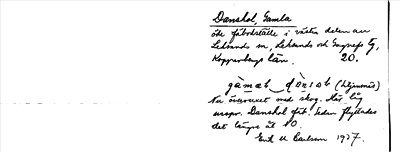 Danshol, Gamla
öde fäbodställe i västra delen av
Leksands sn, Leksands och Gagnefs tg,
Kopparbergs län. 20.
gàmal dànsol (Hjortnäs)
Nu övervuxet med skog. Här låg
urspr. Danshol fäb. Sedan flyttades
det längre åt NO.
Erik O. Carlsson 1937.